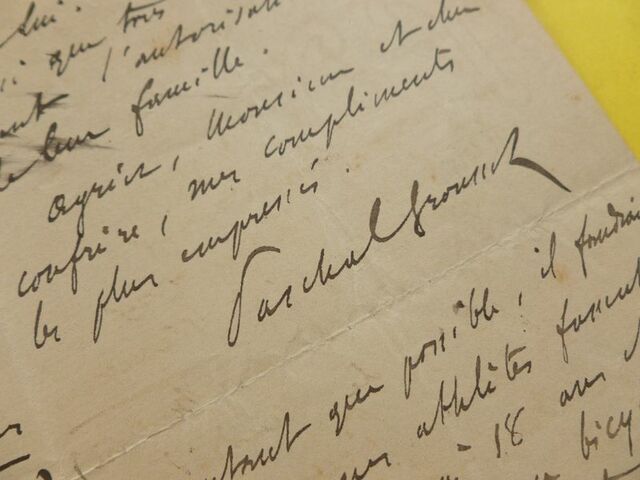 lui.
que très
l'autorisati
leur famille.
Agréez, Monsieur et cher
confrère, mes compliments
les plus empressés.
Paschal Grousset
autant que possible, il faudrai
athlètes fussent
18 ans
bicy